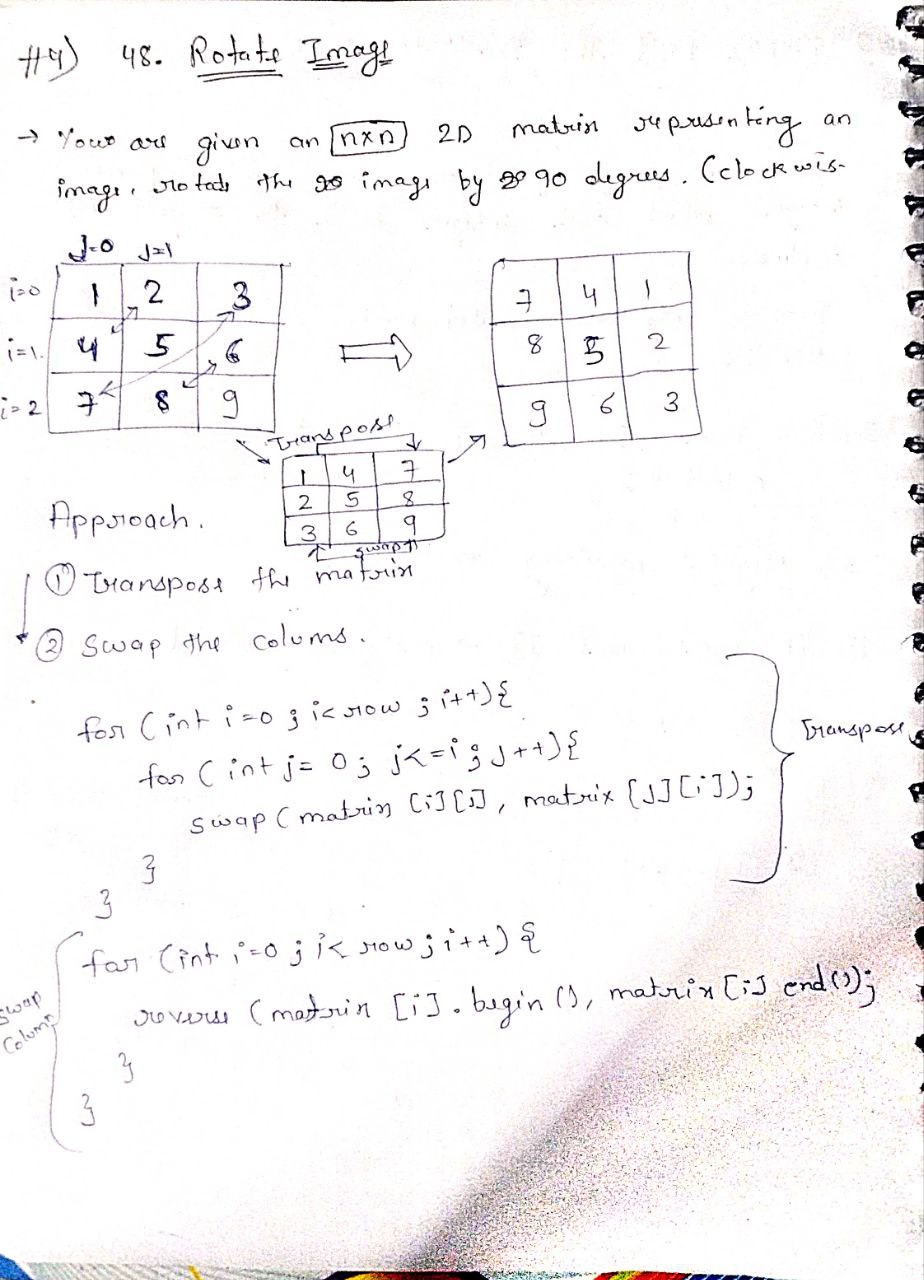 #9) 48. Rotate Image
→ Your are given an n×n 2D matrix representing an
image, rotate the image by 90 degrees. (clockwis-
J=0 J=1
i=0 1 2 3
i=1. 4 5 6
i=2 7 8 9
7 4 1
8 5 2
9 6 3
Transpose
1 4 7
2 5 8
3 6 9
swap
Approach.
① Transpose the matrix
② Swap the colums.
for (int i=0; i< row; i++){
for (int j= 0; j<=i; J++){
swap (matrix [i][J], matrix [J][i]);
}
}
Transpose
for (int i=0; i< row; i++) {
reverse (matrix [i]. begin (), matrix [i] end());
}
}
Swap
Column